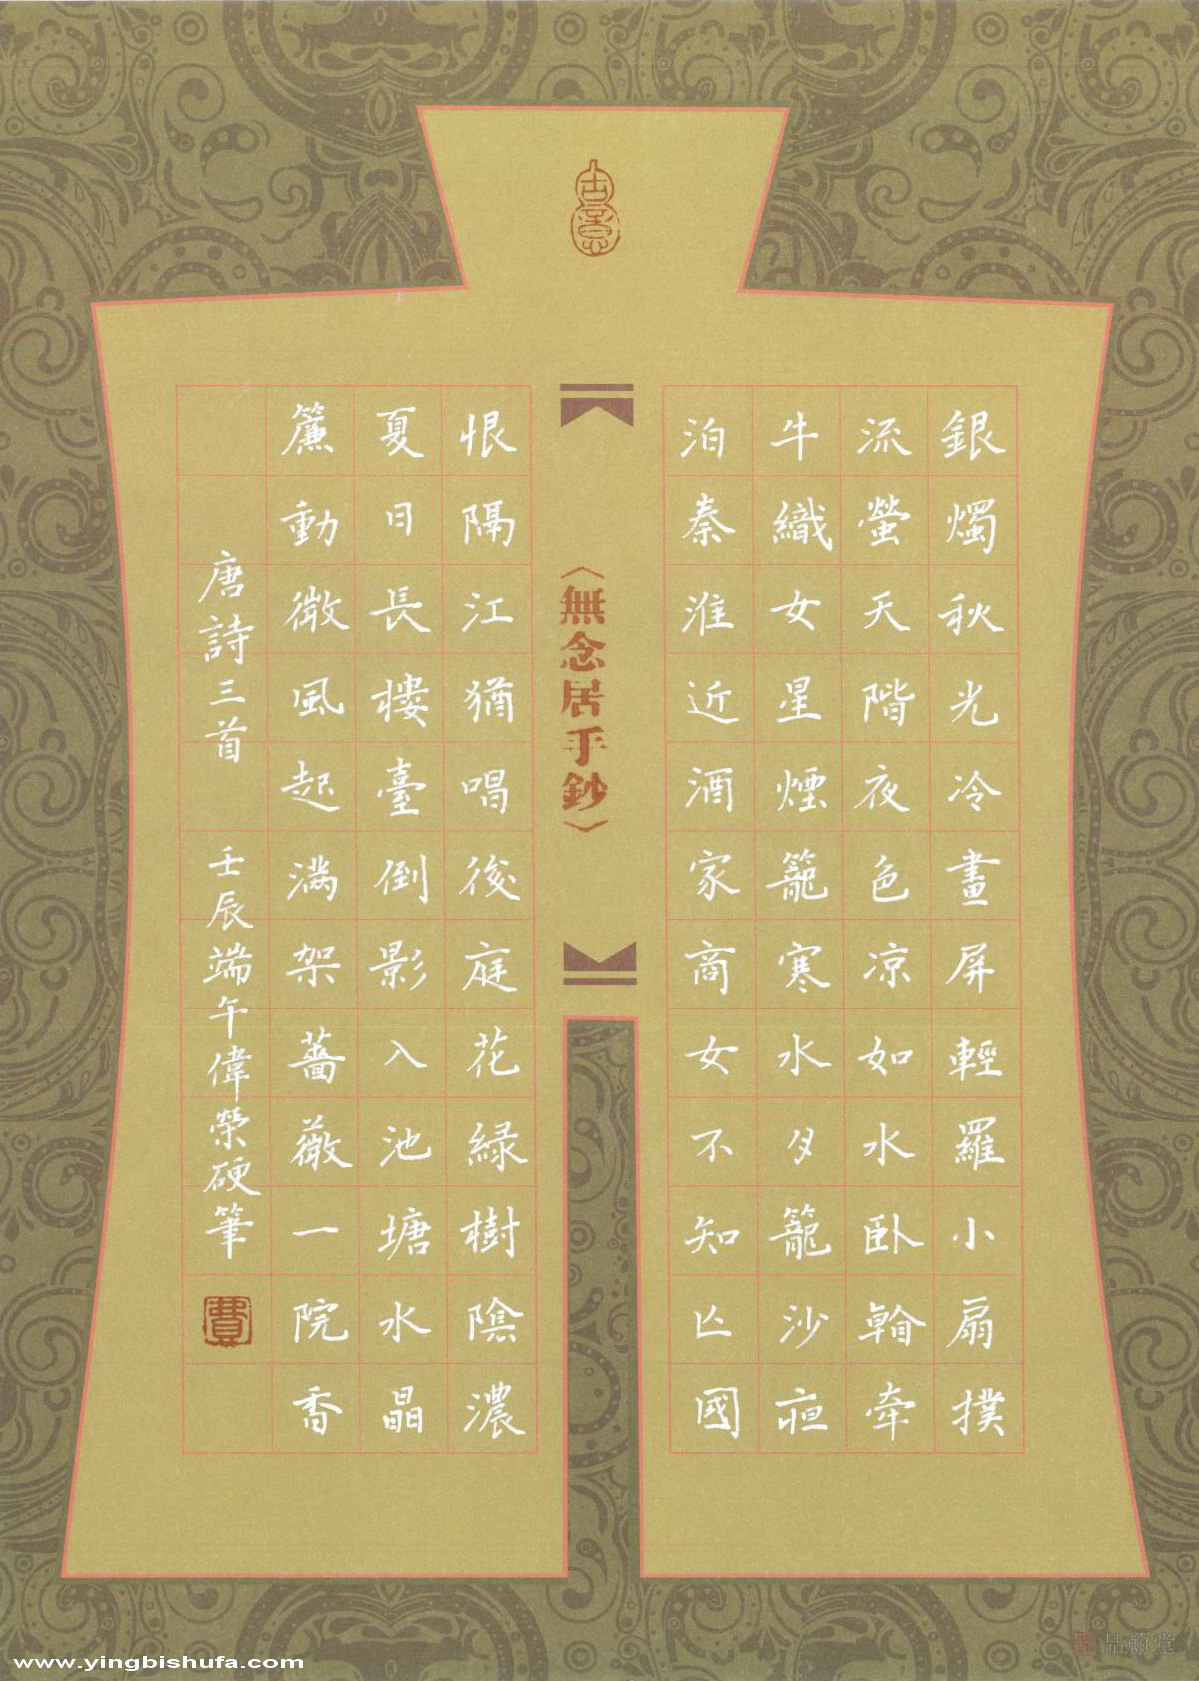 古意
銀燭秋光冷畫屏輕羅小扇撲
流螢天階夜色凉如水臥看牽
牛織女星煙籠寒水月籠沙夜
泊秦淮近酒家商女不知亡國
〈無念居手鈔〉
恨隔江猶唱後庭花綠樹陰濃
夏日長樓臺倒影入池塘水晶
簾動微風起滿架薔薇一院香
唐詩三首
壬辰端午偉榮硬筆
費
www.yingbishufa.com
品翰堂